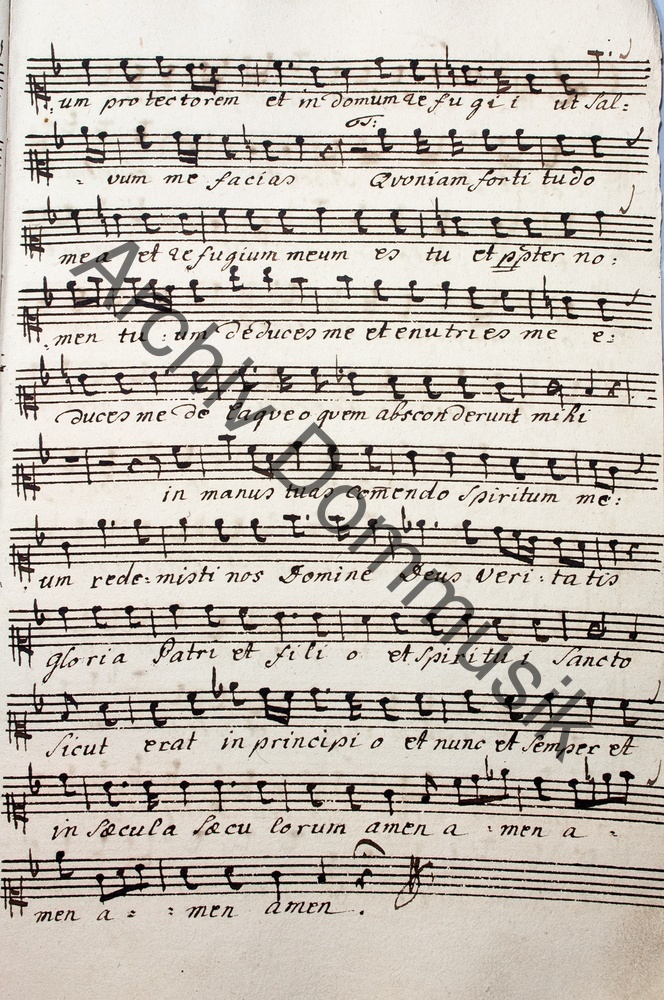 um protectorem et in domum refugii ut sal:
: vum me facias Qvoniam fortitudo
mea et refugium meum es tu et ppter no:
men tu: um deduces me et enutries me e:
duces me de laqveo qvem absconderunt mihi
in manus tuas com̄endo spiritum me:
um rede:misti nos Domine Deus veri:tatis
gloria Patri et filio et spiritui sancto
sicut erat in principio et nunc et semper et
in sæcula sæculorum amen a :men a :
men a : : men amen.
Archiv Dommusik